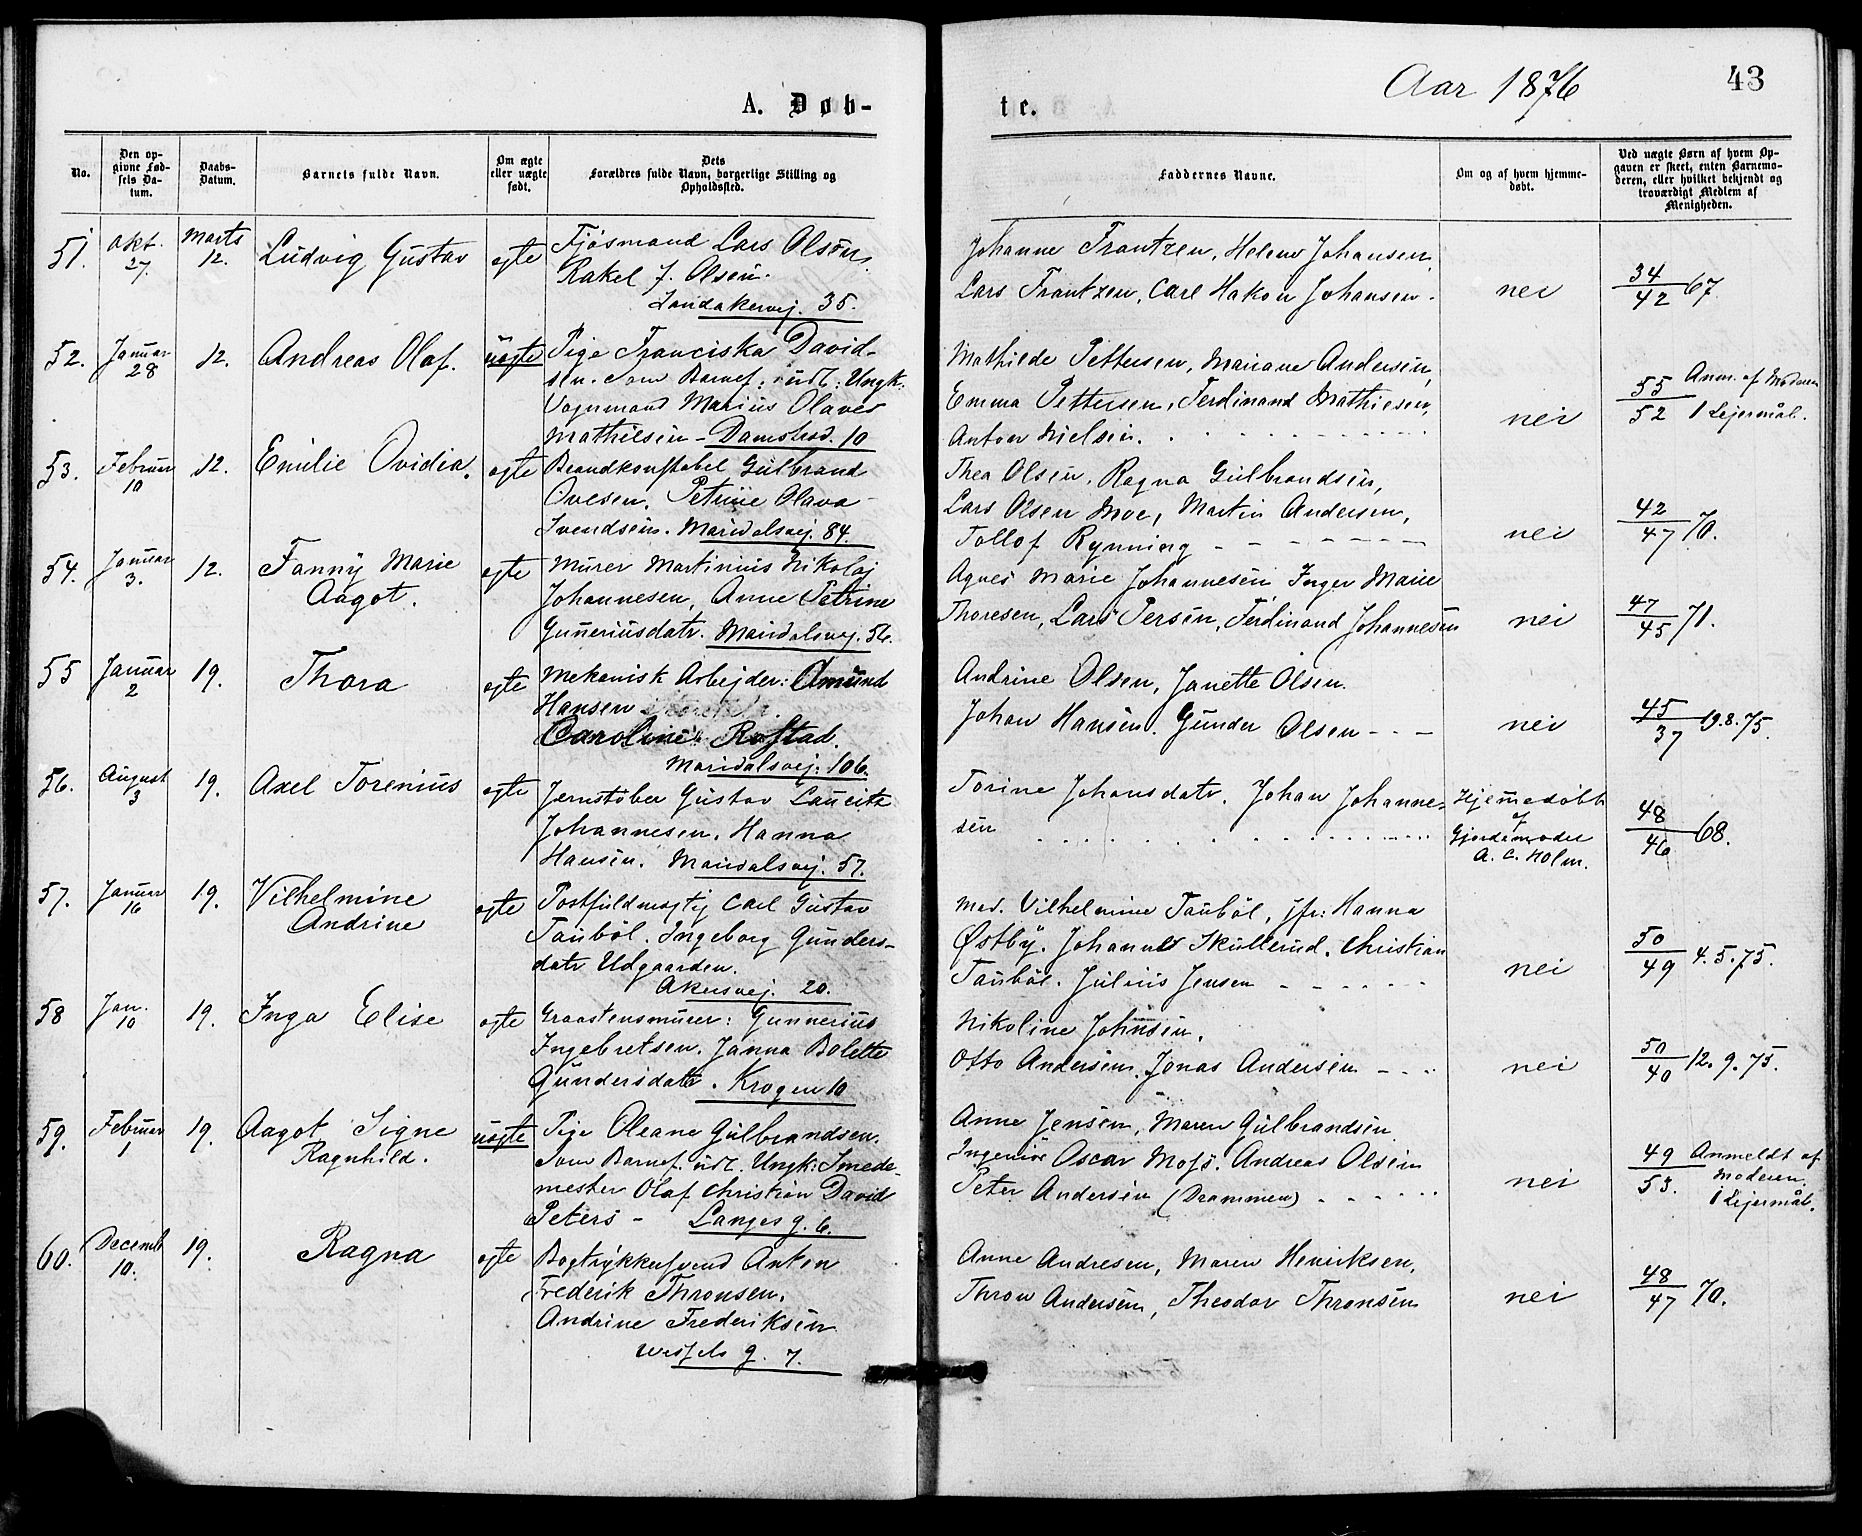 Aar 1876
43
A. Døb-
te.
No.
Den op-
givne Fød-
sels Da-
tum.
Daabs-
Datum.
Barnets fulde Navn.
Om ægte
eller uægte
født.
Dets
Forældres fulde Navn, borgerlige Stilling og
Opholdssted.
Faddernes Navne.
Om og af hvem hjemme-
døbt.
Ved uægte Børn af hvem Op-
gaven er skeet, enten Barnemo-
deren, eller hvilket bekjendt og
troværdigt Medlem af
Menigheden.
51. Okt. 27. Marts 12. Ludvig Gustav ægte
Fjøsmand Lars Olsen,
Rakel J. Olsen.
Sandakervej. 35.
Johanne Frantzen, Helene Johansen,
Lars Frantzen, Carl Hakon Johansen.
nei
34/42 67.
52. Januar 28 12. Andreas Olaf. uægte
Pige Franciska David-
sen. Som Barnef: udl: Ungk:
Vognmand Marius Olaves
Mathisen - Damstrad. 10
Mathilde Pettersen, Mariane Andersen,
Emma Pettersen, Ferdinand Mathiesen,
Anton Nielsen.
nei
55/52 Anm. af Moderen
1 Lejermål.
53. Februar 10 12. Emilie Ovidia. ægte
Brandkonstabel Gulbrand
Ovesen, Petrine Olava
Svendsen. Maridalsvej. 84.
Thea Olsen, Ragna Gulbrandsen,
Lars Olsen Moe, Martin Andersen,
Tollof Rynning
nei
42/47 70.
54. Januar 3. 12. Fanny Marie
Aagot. ægte
Murer Martinius Nikolaj
Johannesen, Anne Petrine
Gunneriusdatr. Maridalsvej. 56.
Agnes Marie Johannesen Inger Marie
Thoresen, Lars Persen, Ferdinand Johannesen
nei
47/45 71.
55 Januar 2 19. Thora ægte
Mekanisk Arbejder: Amund
Hansen
Caroline Rostad.
Maridalsvej. 106.
Andrine Olsen, Janette Olsen.
Johan Hansen. Gunder Olsen
nei
45/37 19.8.75.
56. August 3 19. Axel Torenius ægte
Jernstøber Gustav Lauritz
Johannesen, Hanna
Hansen. Maridalsvej. 57.
Torine Johansdatr. Johan Johanne-
sen
Hjemmedøbt
af
Gjordemoder
A. C. Holm.
48/46 68.
57. Januar 16 19. Vilhelmine
Andrine ægte
Postfuldmægtig Carl Gustav
Taubøl. Ingeborg Gunders-
datr Udgaarden.
Akersvej. 20.
Mad. Vilhelmine Taubøl, Jfr: Hanna
Østby. Johannes Skullerud. Christian
Taubøl. Julius Jensen
nei
50/49 4.5.75.
58 Jan. 10 19. Inga Elise ægte
Graastensmurer: Gunnerius
Ingebretsen. Janna Bolette
Gundersdatr. Krogen 10
Nikoline Johnsen,
Otto Andersen. Jonas Andersen
nei
50/40 12.9.75.
59. Februar 1 19. Aagot Signe
Ragnhild. uægte
Pige Oleane Gulbrandsen.
Som Barnef. udl. Ungk: Smede-
mester Olaf Christian David
Peters - Langes g. 6.
Anne Jensen, Maren Gulbrandsen
Ingeniør Oscar Moss. Andreas Olsen
Peter Andersen (Drammen)
nei
49/53. Anmeldt af
Moderen.
1 Lejermål.
60. Decemb 10. 19. Ragna ægte
Bogtrykkersvend Anton
Frederik Thronsen.
Andrine Frederiksen
Wessels g. 7.
Anne Andresen, Maren Henriksen,
Thron Andersen, Theodor Thronsen
nei
48/47 70.